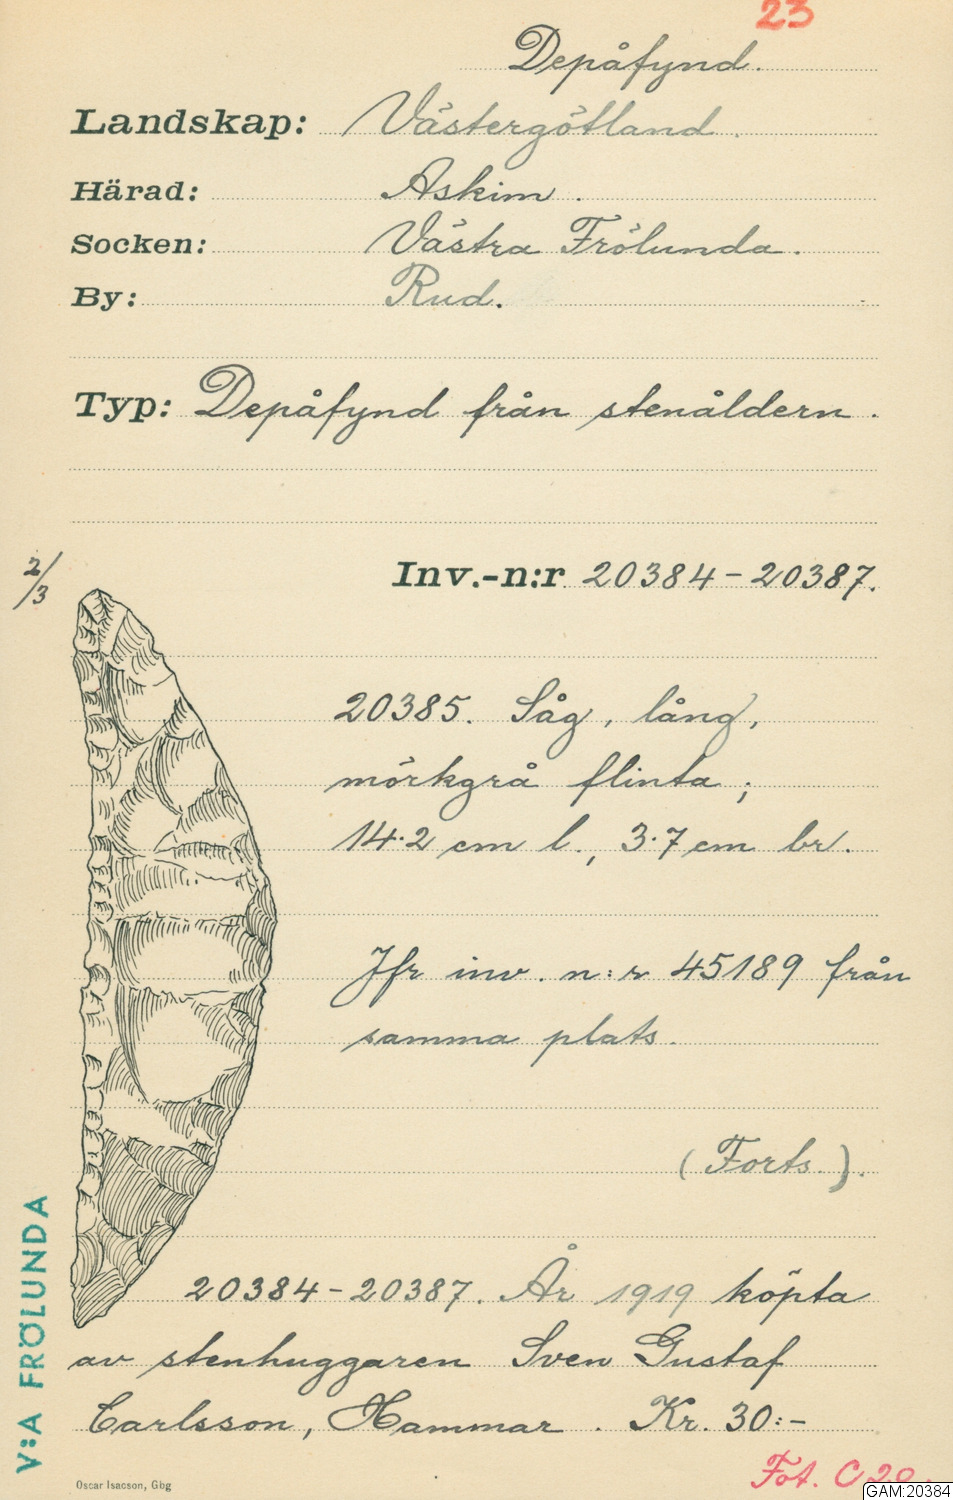 23
Depåfynd.
Landskap: Västergötland.
Härad: Askim.
Socken: Västra Frölunda.
By: Rud.
Typ: Depåfynd från stenåldern.
2/3
Inv.-n:r 20384-20387.
20385. Såg, lång,
mörkgrå flinta;
14·2 cm l., 3·7 cm br.
Jfr inv. n:r 45189 från
samma plats.
(Forts.).
20384-20387. År 1919 köpta
av stenhuggaren Sven Gustaf
Carlsson, Hammar. Kr. 30:-
V:A FRÖLUNDA
Fot. C 20.
Oscar Isacson, Gbg
GAM:20384